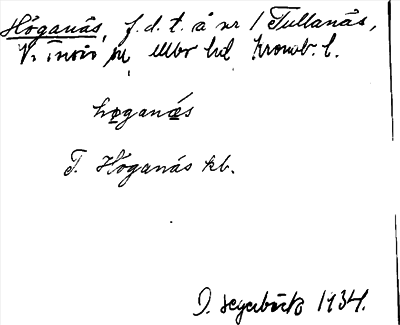 Höganäs, f.d. t. å nr 1 Tullanäs,
V. Torsås sn, Allbo hd Kronob. l.
høganäs
T. Höganäs kb.
D. Segerbäck 1934.